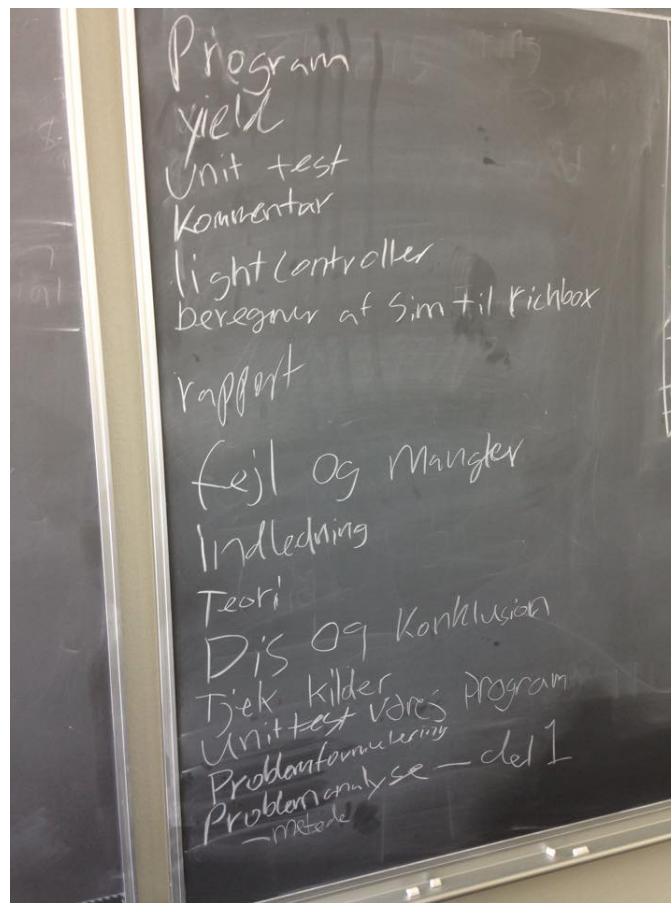 Program
yield
Unit test
kommentar
lightController
beregner af Sim til richbox
rapport
fejl og Mangler
Indledning
Teori
Dis og Konklusion
Tjek kilder
Unittest vores program
Problemformulering
Problemanalyse - del 1
- metode